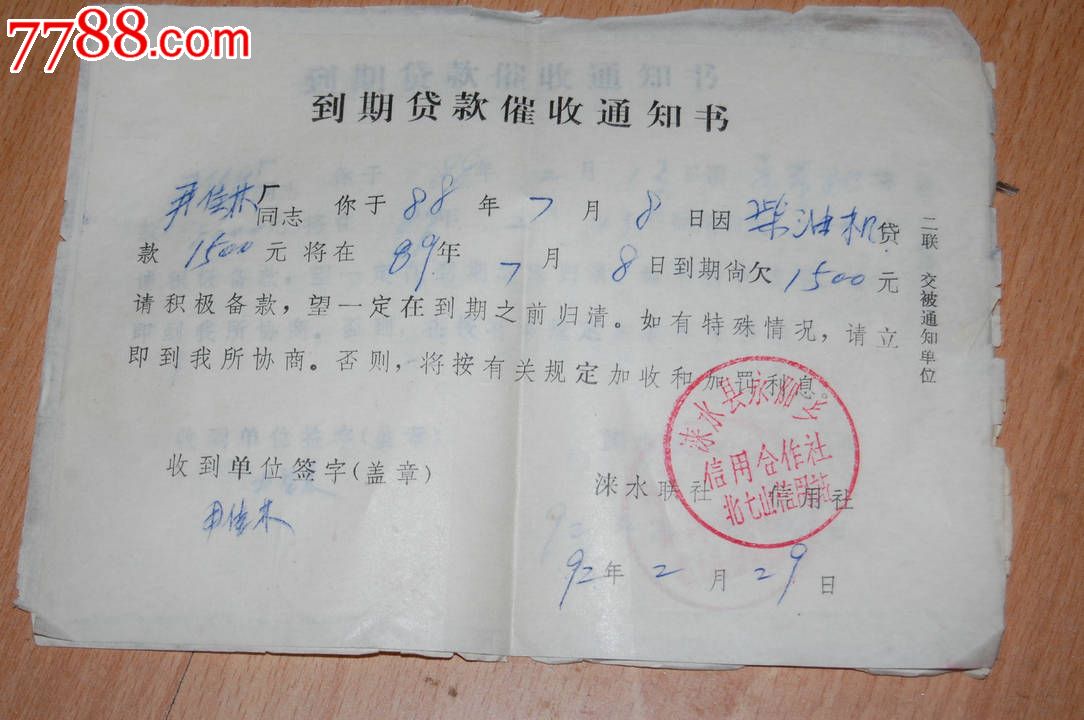 7788.com
到期贷款催收通知书
尹佳林 厂
同志 你于 88 年 7 月 8 日因 柴油机 贷
款 1500 元将在 89年 7 月 8 日到期尚欠 1500 元
请积极备款，望一定在到期之前归清。如有特殊情况，请立
即到我所协商。否则，将按有关规定加收和加罚利息。
二联 交被通知单位
收到单位签字(盖章)
尹佳林
涞水联社 信用社
涞水县永阳乡
信用合作社
北七山信用站
92年 2 月 29 日